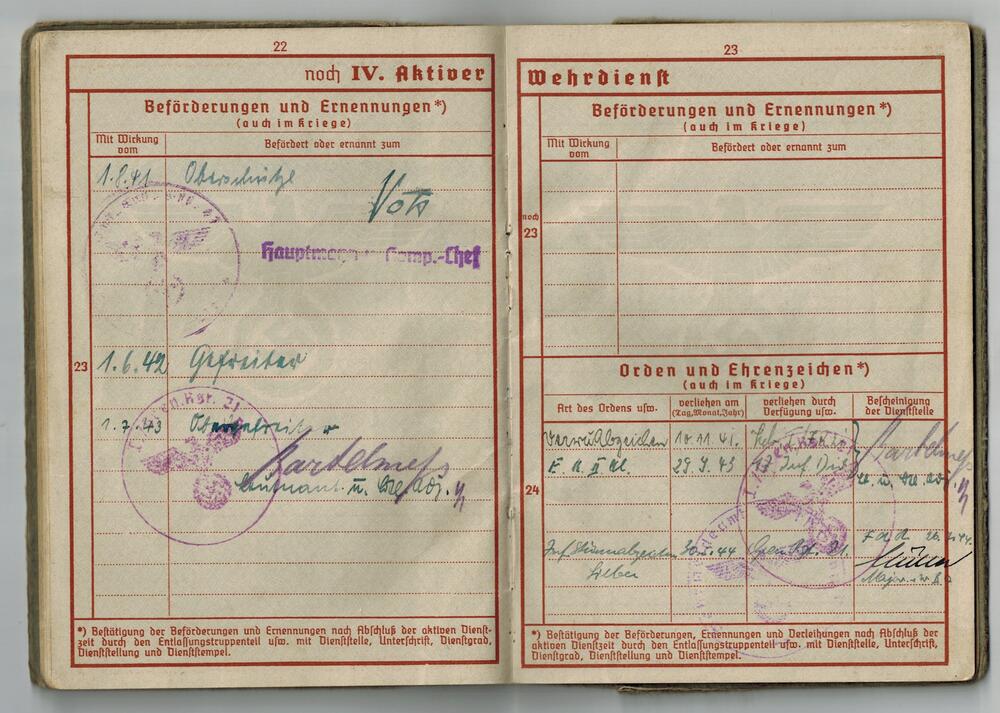 22
noch IV. Aktiver
Beförderungen und Ernennungen*)
(auch im Kriege)
Mit Wirkung
vom
Befördert oder ernannt zum
1.8.41 Oberschütze
Hauptmann u. Komp.-Chef
23
1.6.42 Gefreiter
1.7.43 Obergefreiter
*) Bestätigung der Beförderungen und Ernennungen nach Abschluß der aktiven Dienst-
zeit durch den Entlassungstruppenteil usw. mit Dienststelle, Unterschrift, Dienstgrad,
Dienststellung und Dienststempel.
23
Wehrdienst
Beförderungen und Ernennungen*)
(auch im Kriege)
Mit Wirkung
vom
Befördert oder ernannt zum
noch
23
Orden und Ehrenzeichen*)
(auch im Kriege)
Art des Ordens usw.
verliehen am
(Tag, Monat, Jahr)
verliehen durch
Verfügung usw.
Bescheinigung
der Dienststelle
10.11.41.
E. K. II Kl.
24
Inf. Sturmabzeichen 30.5.44
Silber
Major
*) Bestätigung der Beförderungen, Ernennungen und Verleihungen nach Abschluß der
aktiven Dienstzeit durch den Entlassungstruppenteil usw. mit Dienststelle, Unterschrift,
Dienstgrad, Dienststellung und Dienststempel.